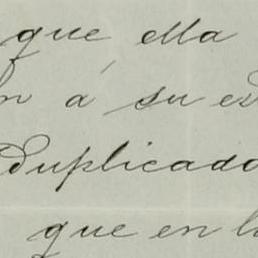 que ella
n á su es
Duplicado
que en l